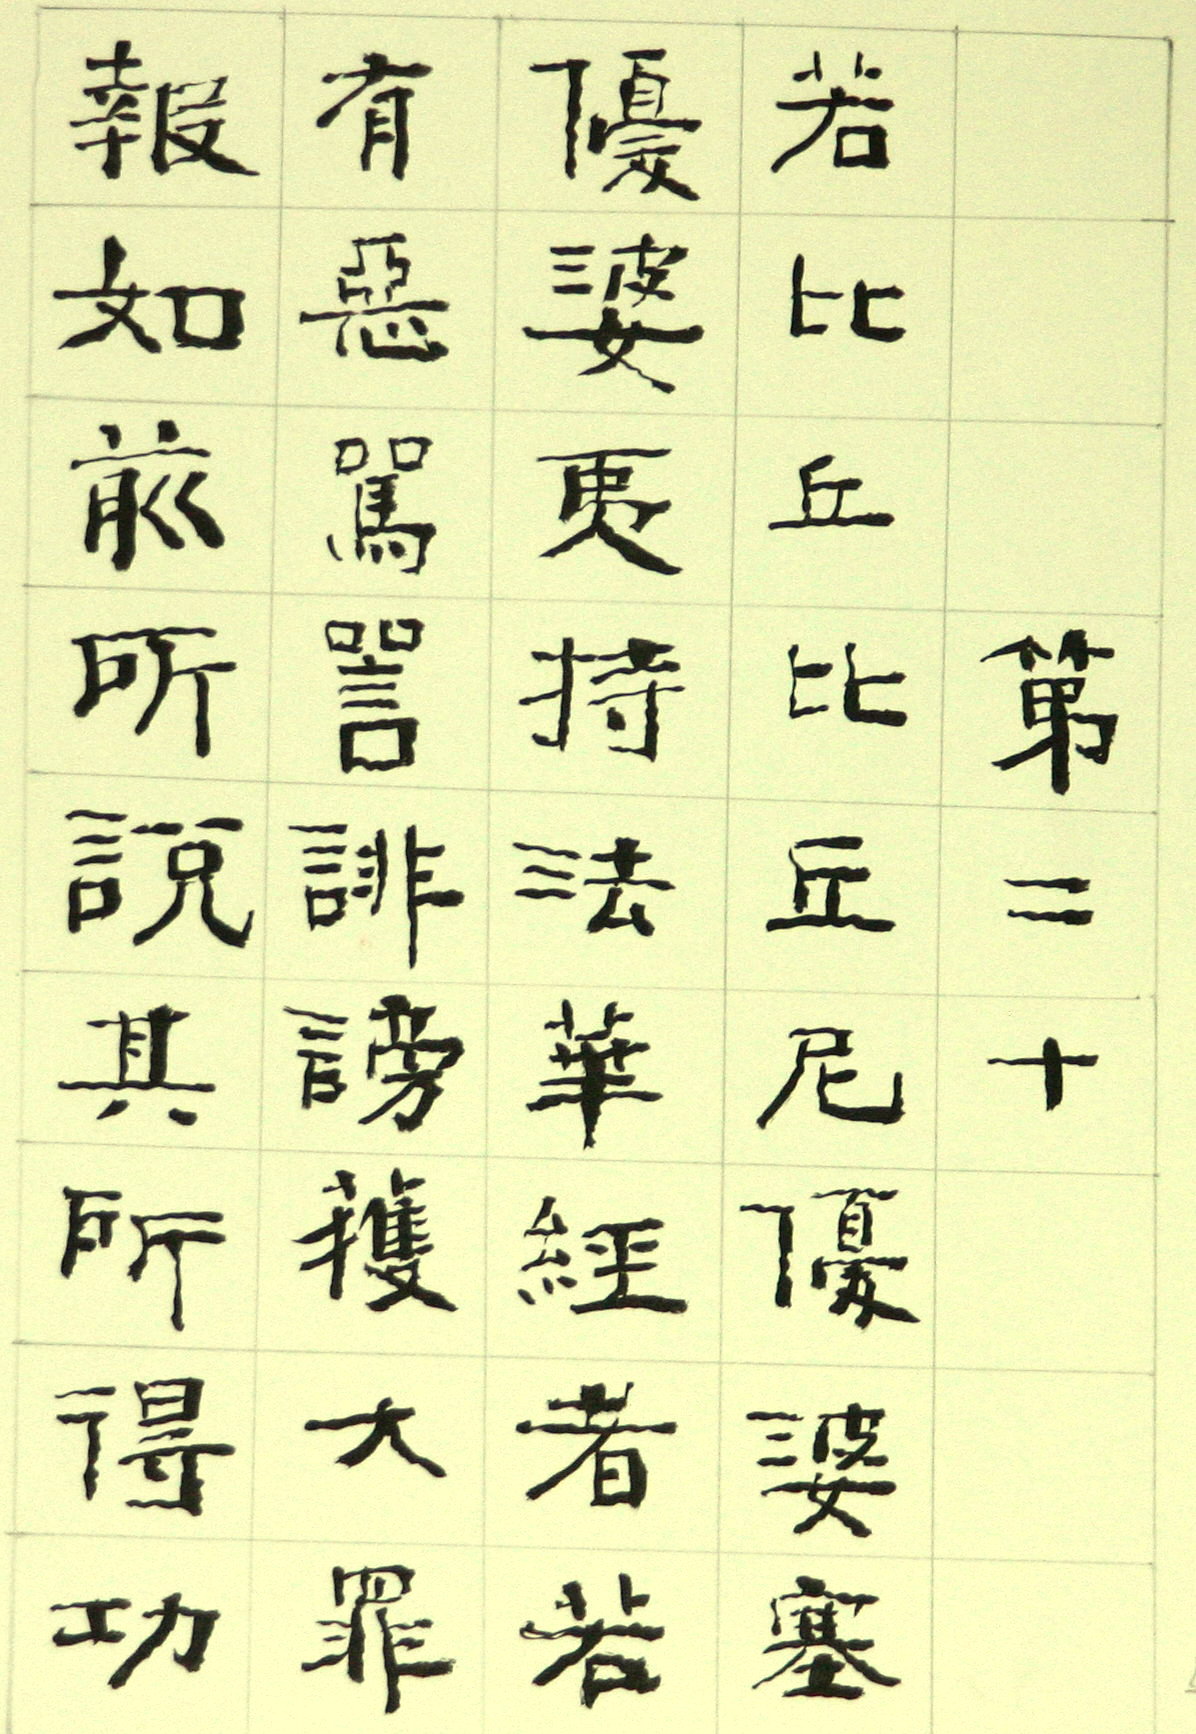 第二十
若比丘比丘尼優婆塞
優婆夷持法華經者若
有惡罵詈誹謗獲大罪
報如前所說其所得功